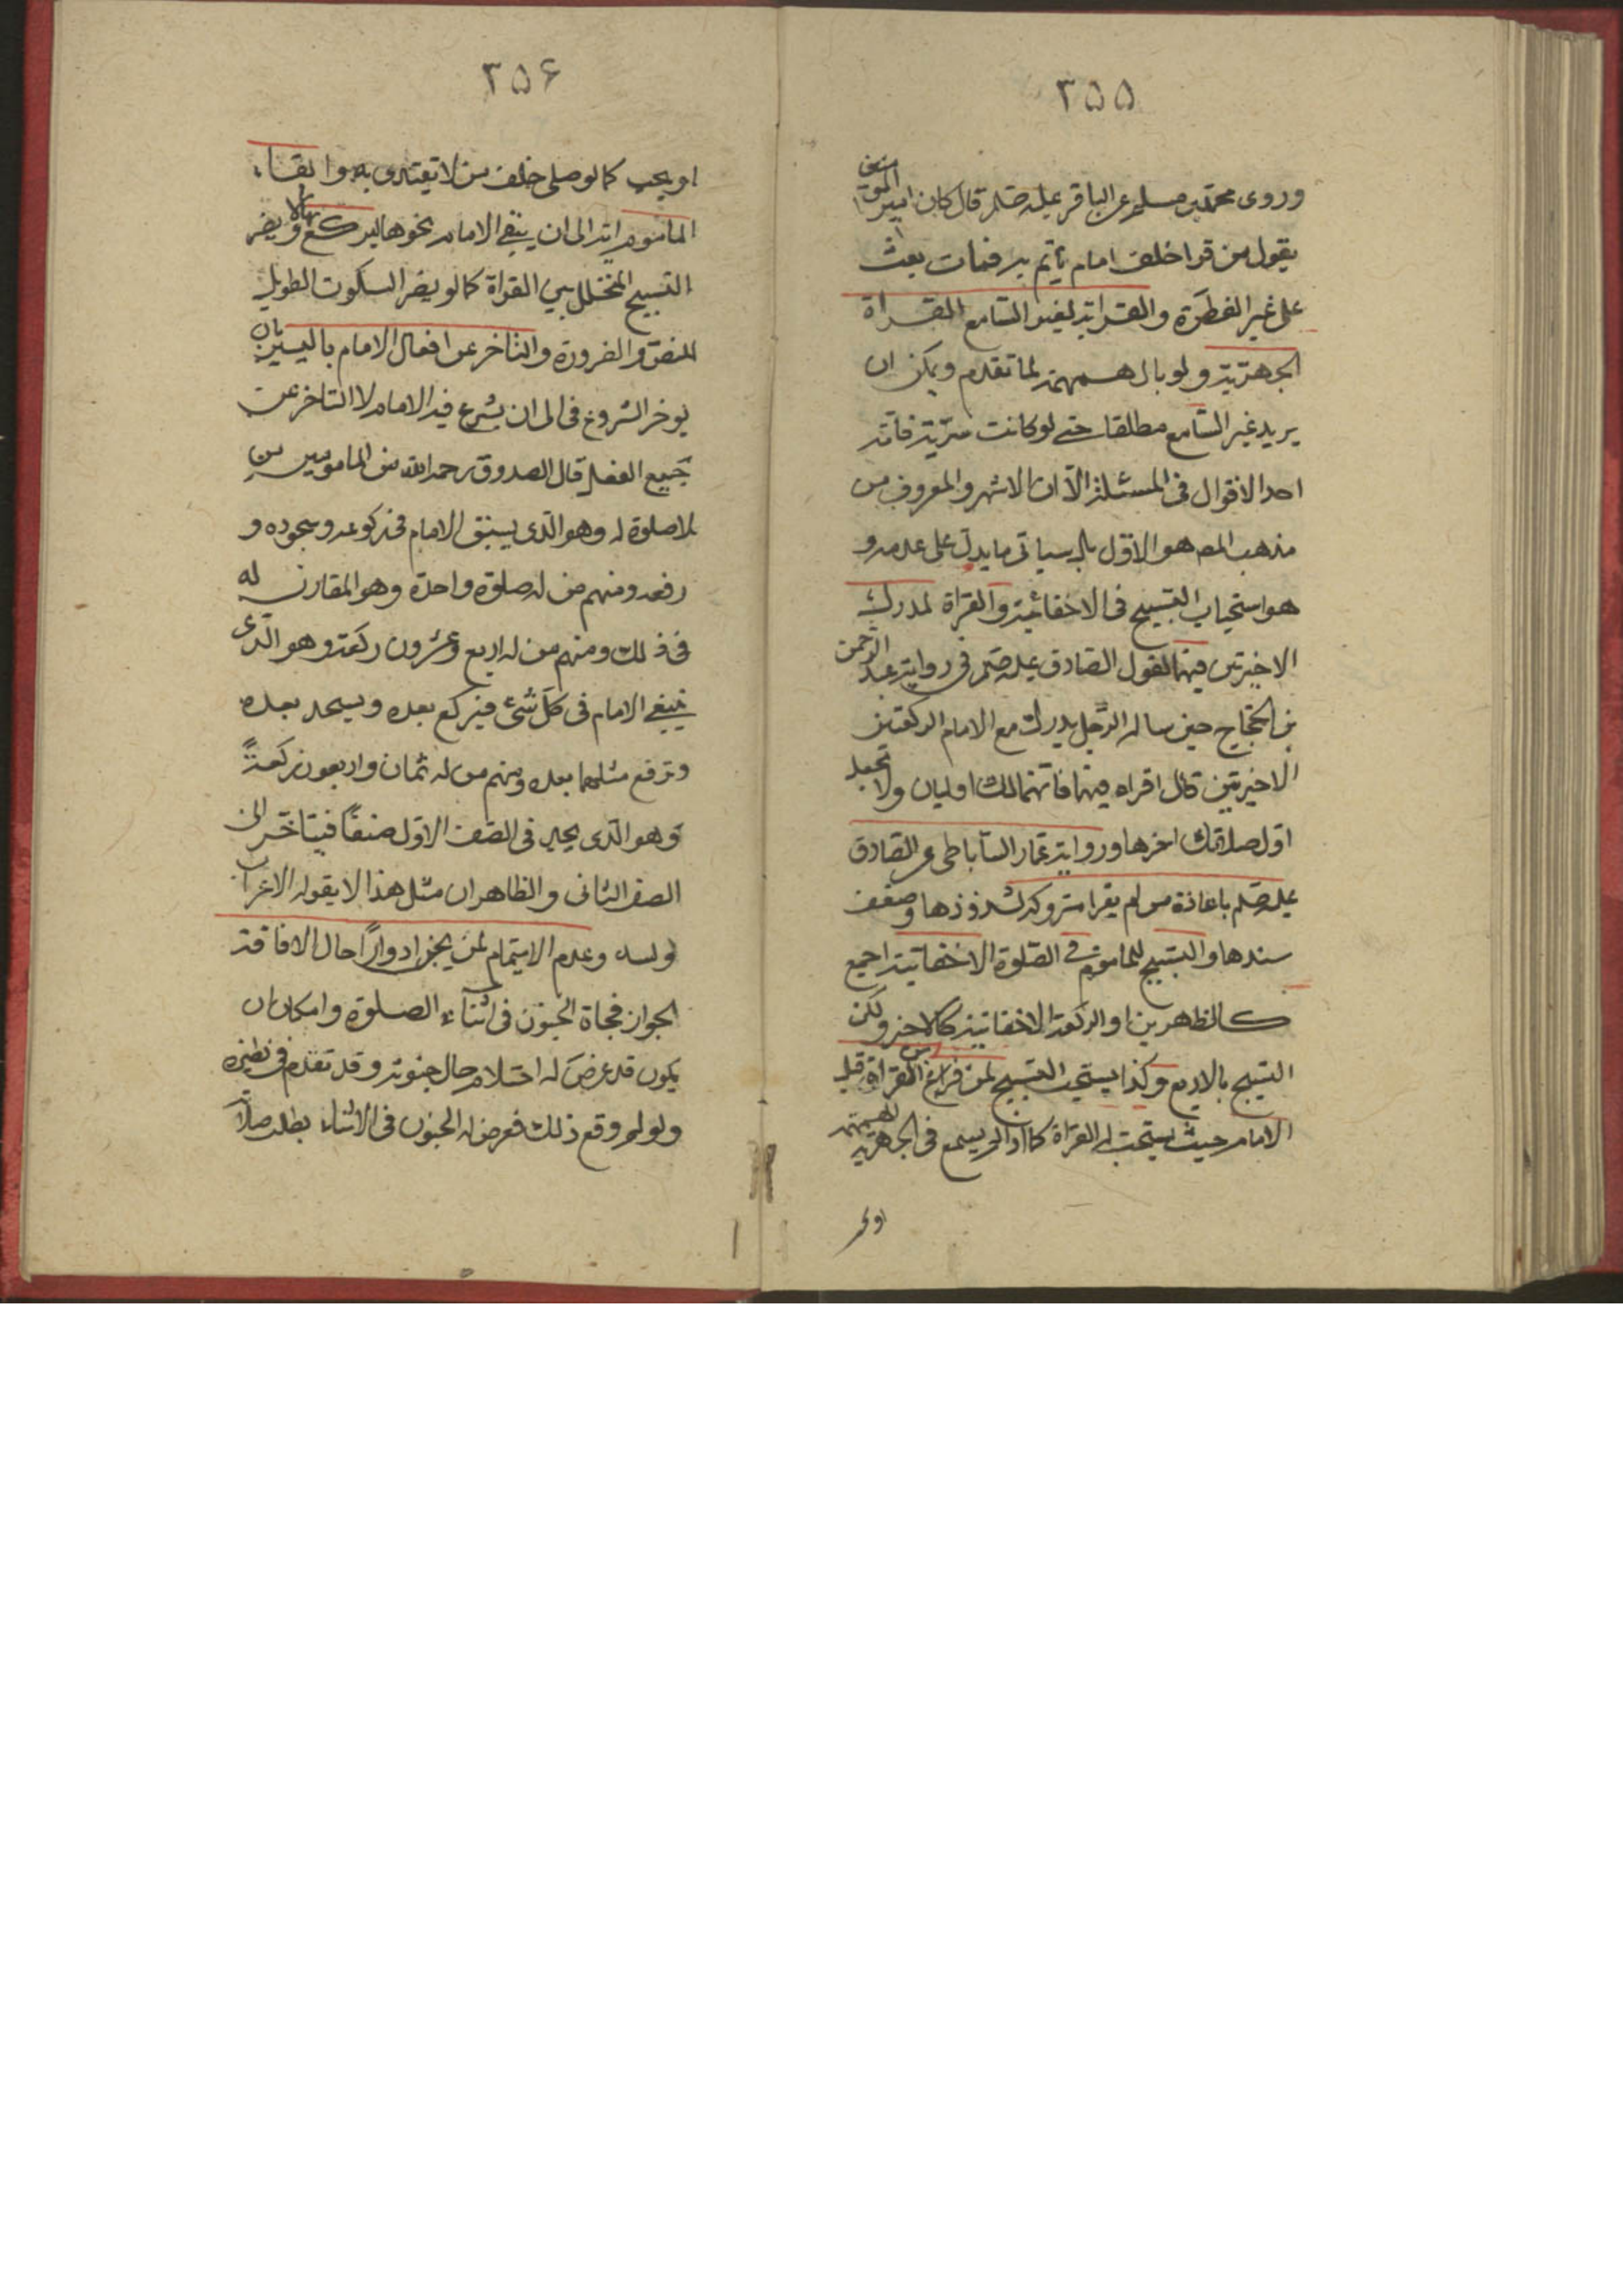 ٣٥٥
وروى محمد بن مسلم عن الباقر عليه صلم قال كان امير المومنين
يقول من قرا خلف امام ياتم به فمات بعث
على غير الفطرة والقراءة لغير السامع القراة
الجهرية ولو بالهمهمة لما تقدم ويمكن ان
يريد غير السامع مطلقا حتى لو كانت سرية فانه
احد الاقوال في المسئلة الا ان الاشهر والمعروف من
مذهب المص هو الاول بل سياتى ما يدل على عدمه و
هو استحباب التسبيح فى الاخفائية والقراة لمدرك
الاخيرتين فيهما لقول الصادق عليه صلم في رواية عبد الرحمن
بن الحجاج حين ساله الرجل يدرك مع الامام الركعتين
الاخيرتين قال اقراه فيهما فانهما لك اوليان ولا تجعل
اول صلاتك اخرها ورواية عمار الساباطى عن الصادق
عليه صلم باعادة من لم يقرا متروكه لشذوذها وضعف
سندها والتسبيح للماموم في الصلوة الاخفاتية اجمع
كالظهرين او الركعة الاخفاتية كالاخر ولكن
التسبيح بالاربع وكذا يستحب التسبيح لمن فرغ من القراة قبل
الامام حيث يستحب له القراة كما اذا لم يسمع فى الجهرية همهمة
او يجب
٣٥۶
او يجب كما لو صلى خلف من لا يقتدى به وابقاء
الماموم اية الى ان ينتهى الامام نحوها ليركع بها ولا يضر
التسبيح المتخلل بين القراة كما لو يضر السكوت الطويل
للنص والضرورة والتاخر عن افعال الامام باليسير بان
يوخر الشروع فى الى ان يشرع فيه الامام لا التاخر عن
جميع الفعل قال الصدوق رحمه الله من المامومين من
لا صلوة له وهو الذى يسبق الامام فى ركوعه وسجوده و
رفعه ومنهم من له صلوة واحدة وهو المقارن له
فى ذلك ومنهم من له اربع وعشرون ركعة وهو الذى
يتبع الامام فى كل شئ فيركع بعده ويسجد بعده
وترفع مثلهما بعده ومنهم من له ثمان واربعون ركعة
وهو الذى يجد فى الصف الاول ضيقا فيتاخر الى
الصف الثانى والظاهر ان مثل هذا لا يقوله الا عن
وعدم الايتمام لمن يجن ادوارا حال الافاقة
الجواز فجاة الجنون فى اثناء الصلوة وامكان ان
يكون قد عرض له احتلام حال جنونه وقد تقدم في نظيره
ولو لم وقع ذلك فعرض له الجنون فى الاثناء بطلت صلاة